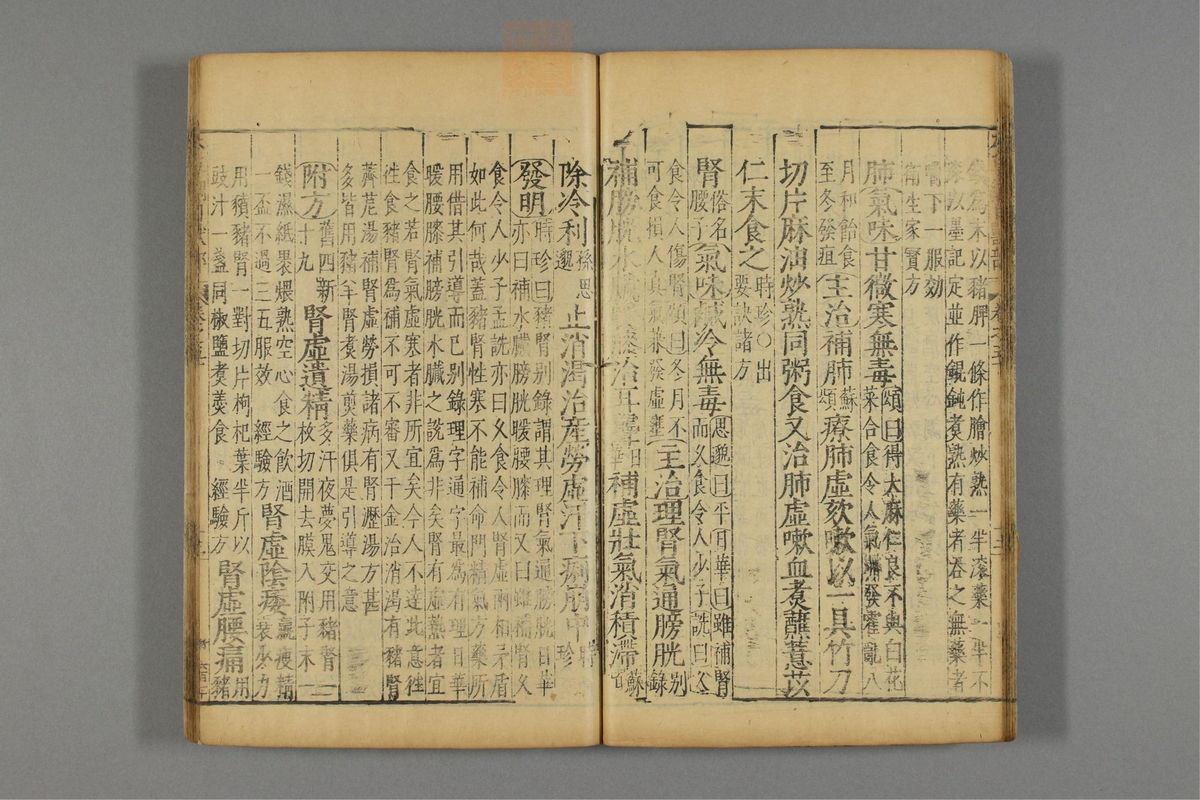 末以豬胛一條作膾炒熟一半滾藥一半不
滾以墨記定並作餛飩煮熟有藥者吞之無藥者
嚼下一服効
衛生家寳方
肺氣味甘微寒無毒頌曰得大麻仁良不與白花
菜合食令人氣滯發霍亂八
月和飴食
至冬發疽主治補肺蘇
頌療肺虛欬嗽以一具竹刀
切片麻油炒熟同粥食又治肺虛嗽血煮蘸薏苡
仁末食之時珍○出
要訣諸方
腎俗名
腰子氣味鹹冷無毒思邈曰平日華曰雖補腎
而久食令人少子詵曰久
食令人傷腎頌曰冬月不
可食損人真氣兼發虛壅主治理腎氣通膀胱別
錄
補膀胱水臟治耳聾日
華補虛壯氣消積滯蘇
除冷利孫思
邈止消渴治產勞虛汗下痢崩中時
珍
發明時珍曰豬腎別錄謂其理腎氣通膀胱日華
亦曰補水臟膀胱暖腰膝而又曰雖補腎久
食令人少子孟詵亦曰久食令人腎虛兩相矛盾
如此何哉蓋豬腎性寒不能補命門精氣方藥所
用借其引導而已別錄理字通字最為有理日華
暖腰膝補膀胱水臟之說為非矣腎有虛熱者宜
食之若腎氣虛寒者非所宜矣今人不達此意往
往食豬腎為補不可不審又千金治消渴有豬腎
薺苨湯補腎虛勞損諸病有腎瀝湯方甚
多皆用豬羊腎煮湯煎藥俱是引導之意
附方舊四新
十九腎虛遺精多汗夜夢鬼交用豬腎一
枚切開去膜入附子末一
錢濕紙裹煨熟空心食之飲酒
一盃不過三五服效　經驗方腎虛陰痿羸瘦精
衰少力
用豶豬腎一對切片枸杞葉半斤以
豉汁一盞同椒鹽煮羹食　經驗方腎虛腰痛用
豬